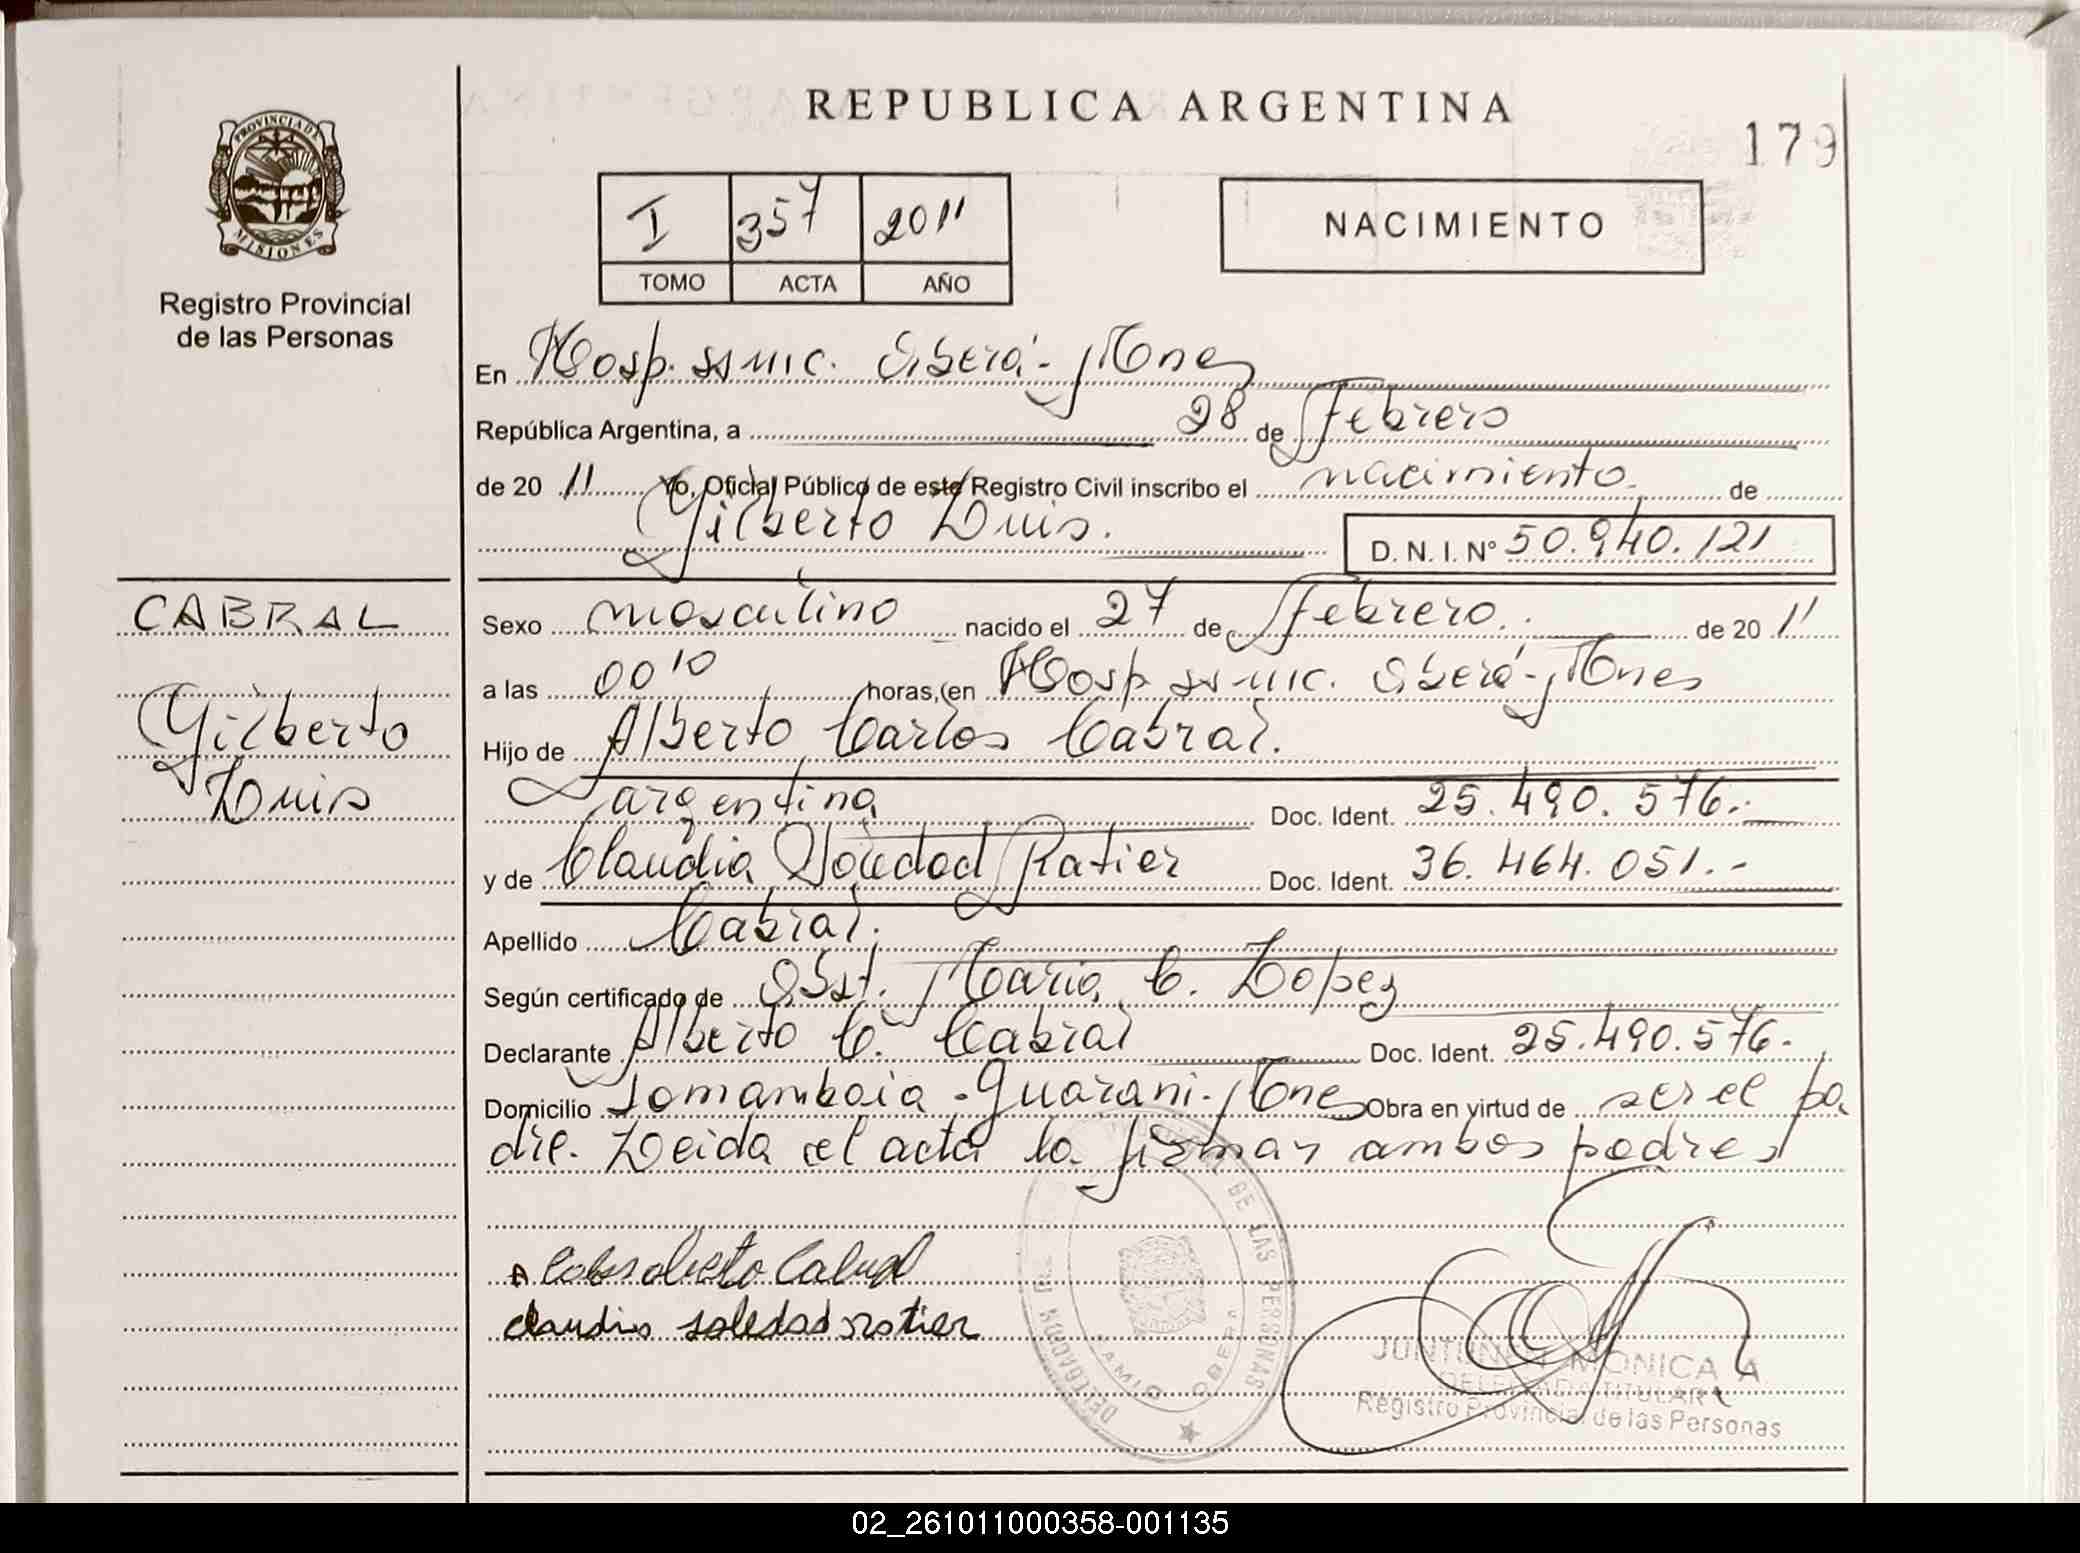 REPUBLICA ARGENTINA
179
PROVINCIA DE
MISIONES
Registro Provincial
de las Personas
I 357 2011
TOMO ACTA AÑO
NACIMIENTO
En Hosp. SSMIC. Oberá - Mnes
República Argentina, a 28 de Febrero
de 20 11 Yo, Oficial Público de este Registro Civil inscribo el nacimiento de
Gilberto Luis. D. N. I. N° 50.940.121
CABRAL
Gilberto
Luis
Sexo masculino nacido el 27 de Febrero. de 20 11
a las 00 10 horas, en Hosp SSMIC. Oberá - Mnes
Hijo de Alberto Carlos Cabral.
argentina Doc. Ident. 25.490.576.-
y de Claudia Soledad Ratier Doc. Ident. 36.464.051.-
Apellido Cabral.
Según certificado de Obst. Maria C. Lopez
Declarante Alberto C. Cabral Doc. Ident. 25.490.576.
Domicilio Guarani - Mnes Obra en virtud de ser el pa
dre. Leida el acta la firman ambos padres
Cabral
claudia soledad ratier
DE LAS PERSONAS
DELEGACION
OBERA
JUNTUNEN MONICA A
DELEGADA TITULAR
Registro Provincial de las Personas
02_261011000358-001135